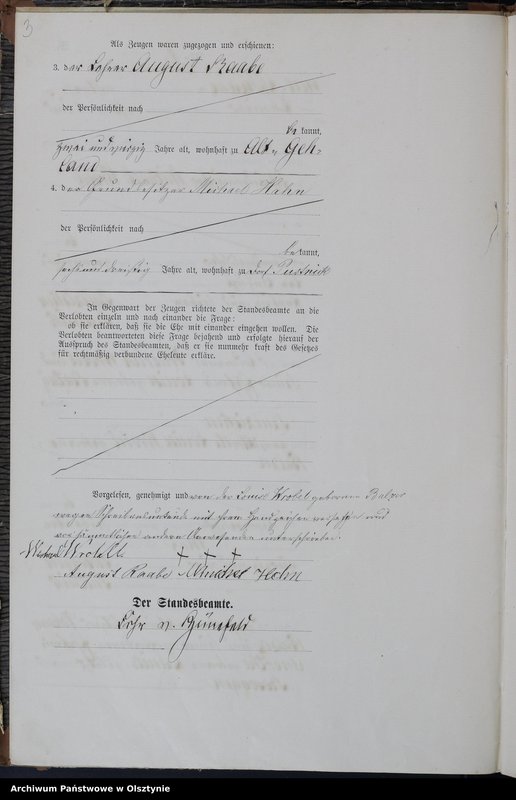 3
Als Zeugen waren zugezogen und erschienen:
3. der Lehrer August Raabe
der Persönlichkeit nach
be kannt,
zwei und vierzig Jahre alt, wohnhaft zu Alt- Geh-
land
4. der Grundbesitzer Michael Hohn
der Persönlichkeit nach
be kannt,
sechs und dreißig Jahre alt, wohnhaft zu Dorf Pustnick
In Gegenwart der Zeugen richtete der Standesbeamte an die
Verlobten einzeln und nach einander die Frage:
ob sie erklären, daß sie die Ehe mit einander eingehen wollen. Die
Verlobten beantworteten diese Frage bejahend und erfolgte hierauf der
Ausspruch des Standesbeamten, daß er sie nunmehr kraft des Gesetzes
für rechtmäßig verbundene Eheleute erkläre.
Vorgelesen, genehmigt und von der Louise geborene
wegen Schreibensunkunde mit ihrem Handzeichen versehen und
von sämmtlichen anderen Anwesenden unterschrieben.
Michael + + +
August Raabe Michael Hohn
Der Standesbeamte.
Archiwum Państwowe w Olsztynie